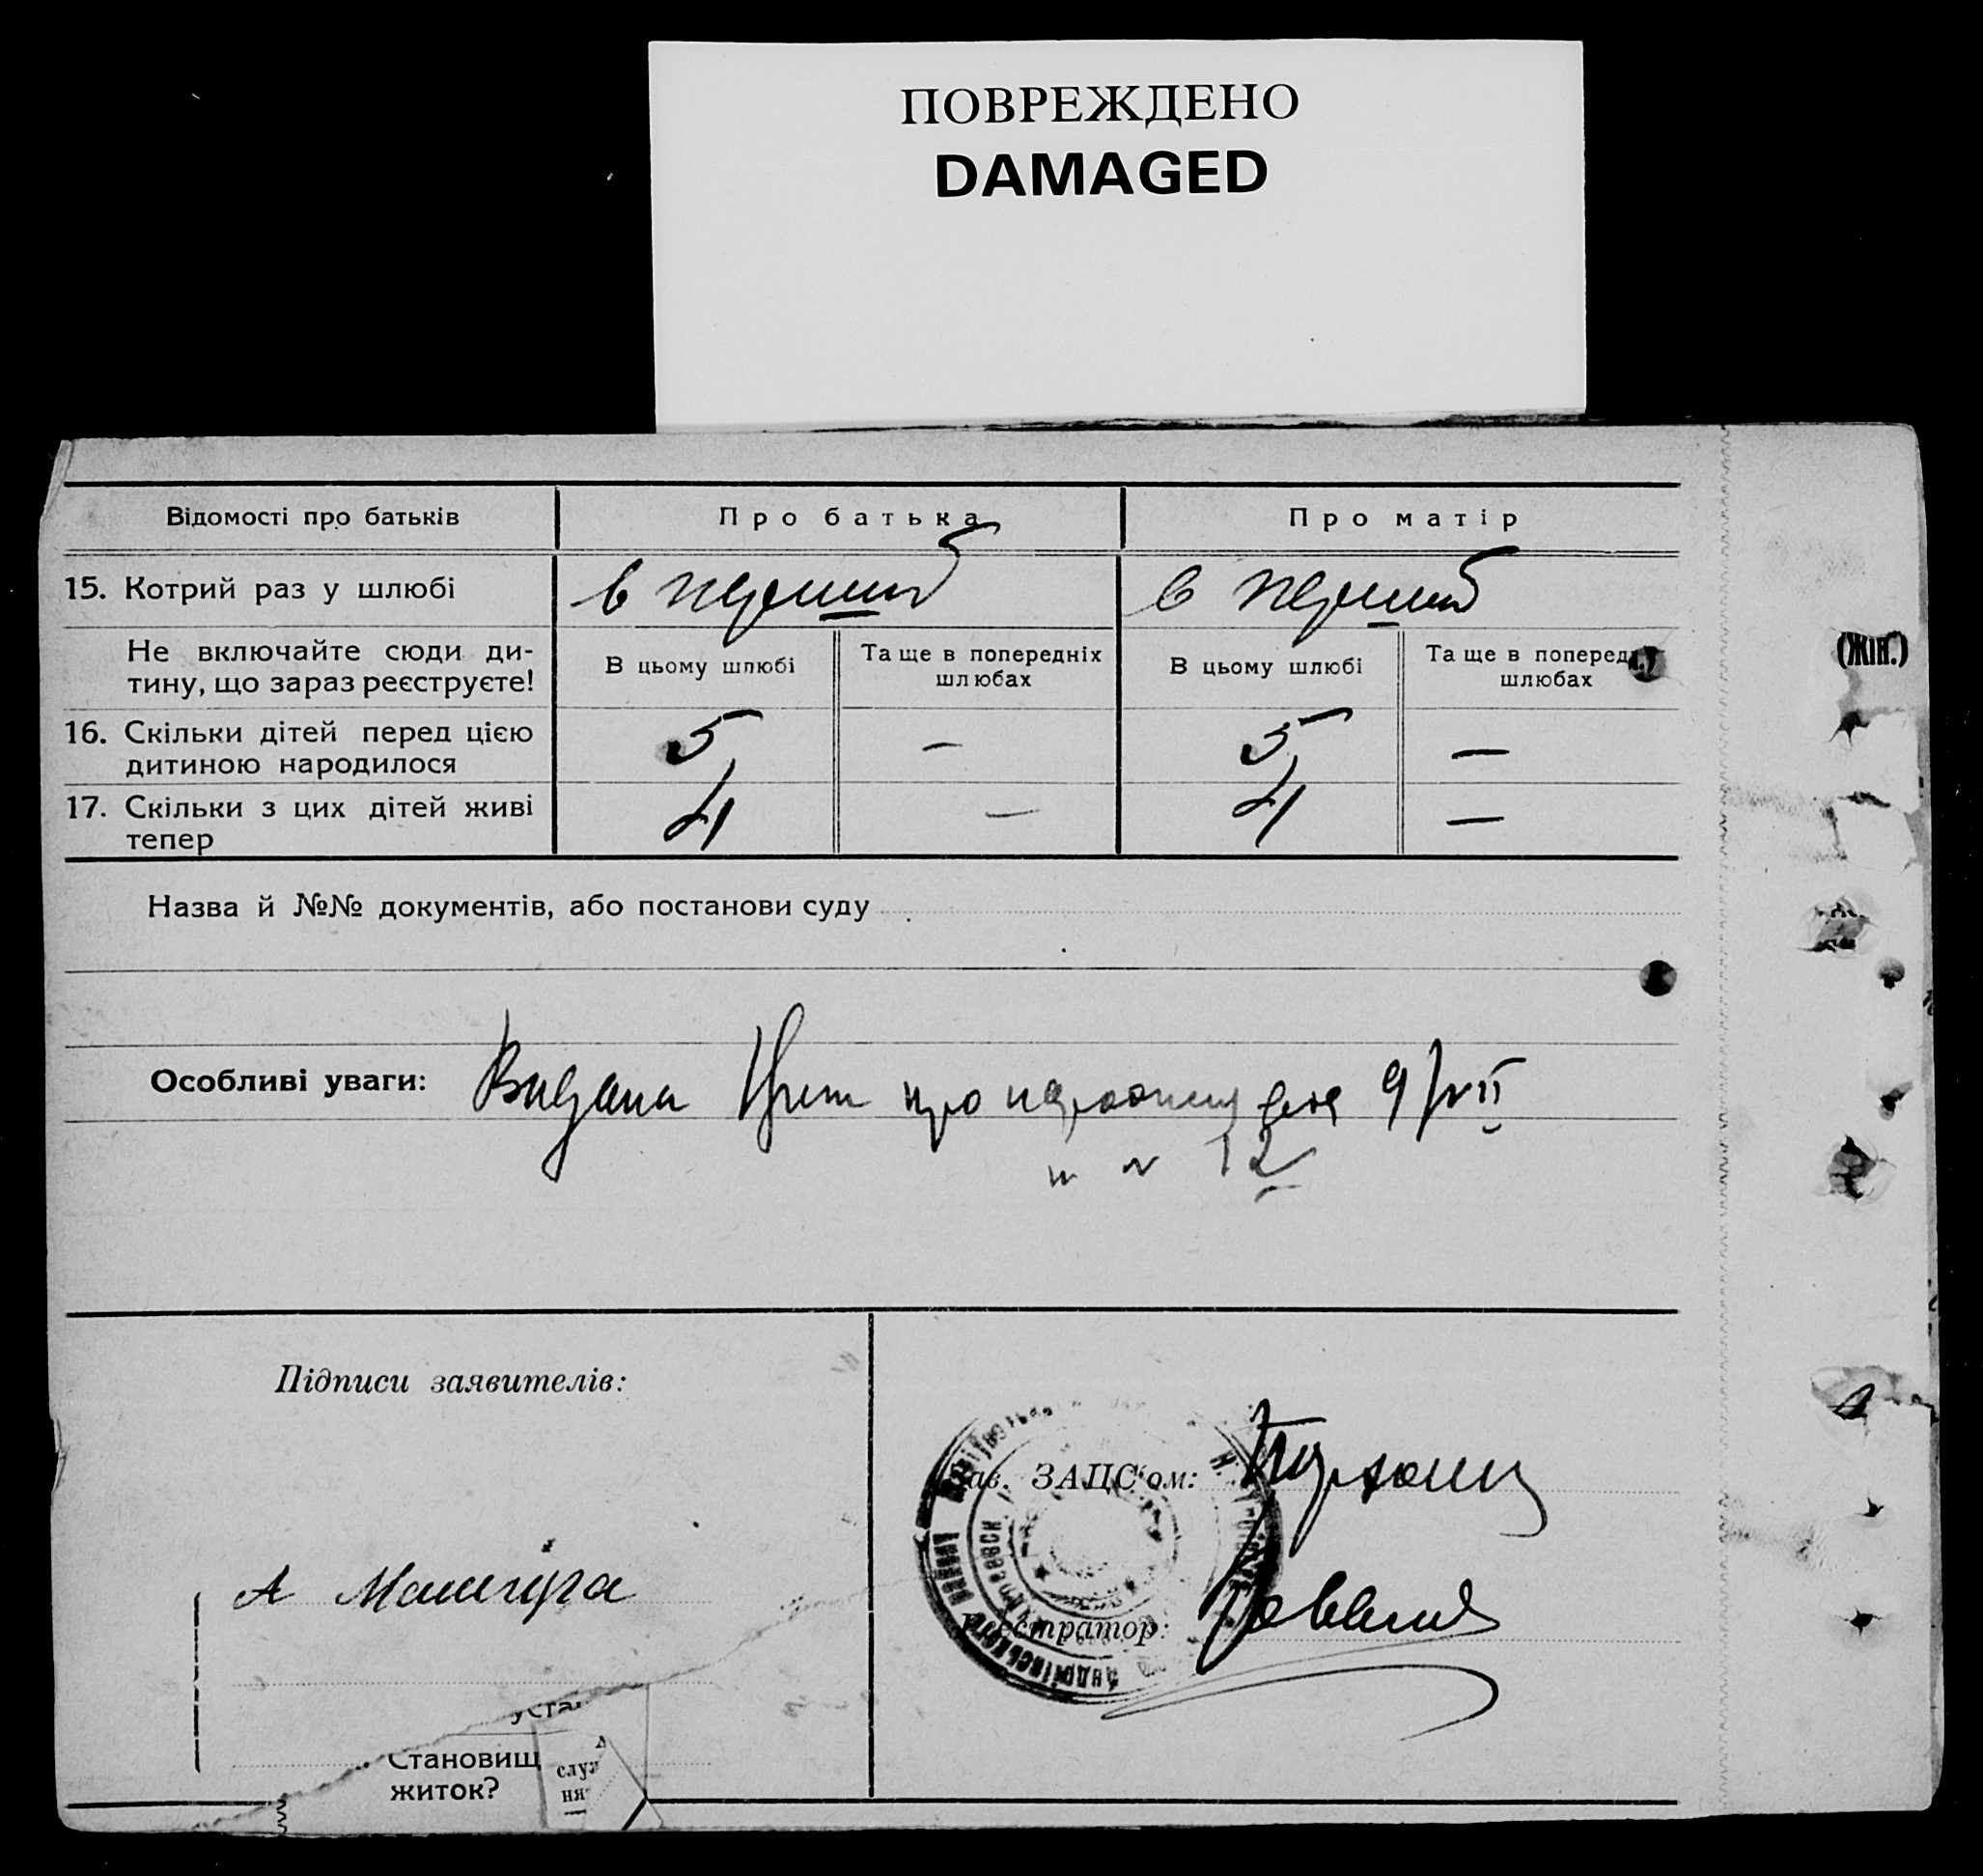 ПОВРЕЖДЕНО
DAMAGED
Відомості про батьків
Про батька
Про матір
15. Котрий раз у шлюбі
в перший
в перший
Не включайте сюди ди-
тину, що зараз реєструєте!
В цьому шлюбі
Та ще в попередніх
шлюбах
В цьому шлюбі
Та ще в поперед
шлюбах
(жін.)
16. Скільки дітей перед цією
дитиною народилося
5
—
5
—
17. Скільки з цих дітей живі
тепер
4
—
4
—
Назва й №№ документів, або постанови суду
Особливі уваги:
Видана про 9/VII
12
Підписи заявителів:
Зав. ЗАЦС'ом:
А
Реєстратор:
Становищ
житок?
служ
ня